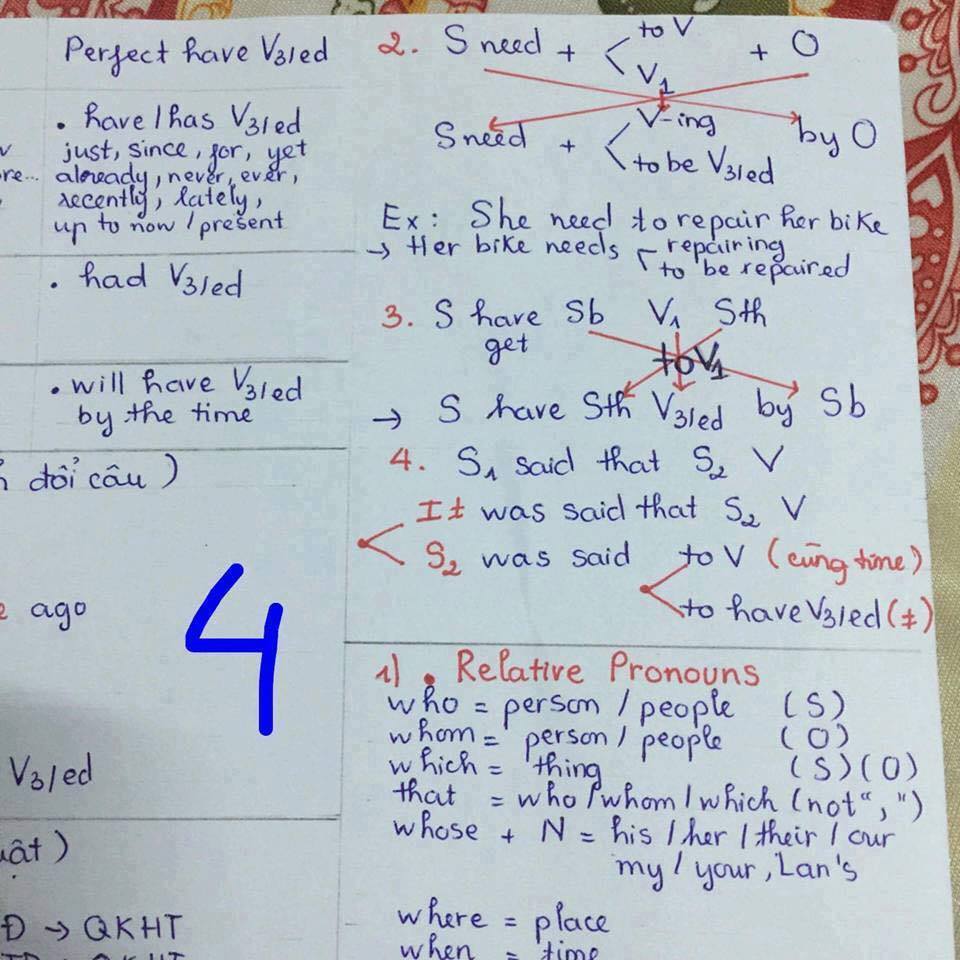 Perfect have V3/ed
• have/has V3/ed
just, since, for, yet
re... already, never, ever,
recently, lately,
up to now / present
• had V3/ed
• will have V3/ed
by the time
đổi câu )
ago
4
V3/ed
uật )
Đ → QKHT
QKHT
2. S need + < to V + O
V1
S need + < V-ing by O
to be V3/ed
Ex: She need to repair her bike
→ Her bike needs repairing
to be repaired
3. S have Sb V1 Sth
get to V1
→ S have Sth V3/ed by Sb
4. S1 said that S2 V
It was said that S2 V
S2 was said to V (cùng time)
to have V3/ed (≠)
1) • Relative Pronouns
who = person / people (S)
whom = person / people (O)
which = thing (S) (O)
that = who/whom/which (not ",")
whose + N = his / her / their / our
my / your, Lan's
where = place
when = time